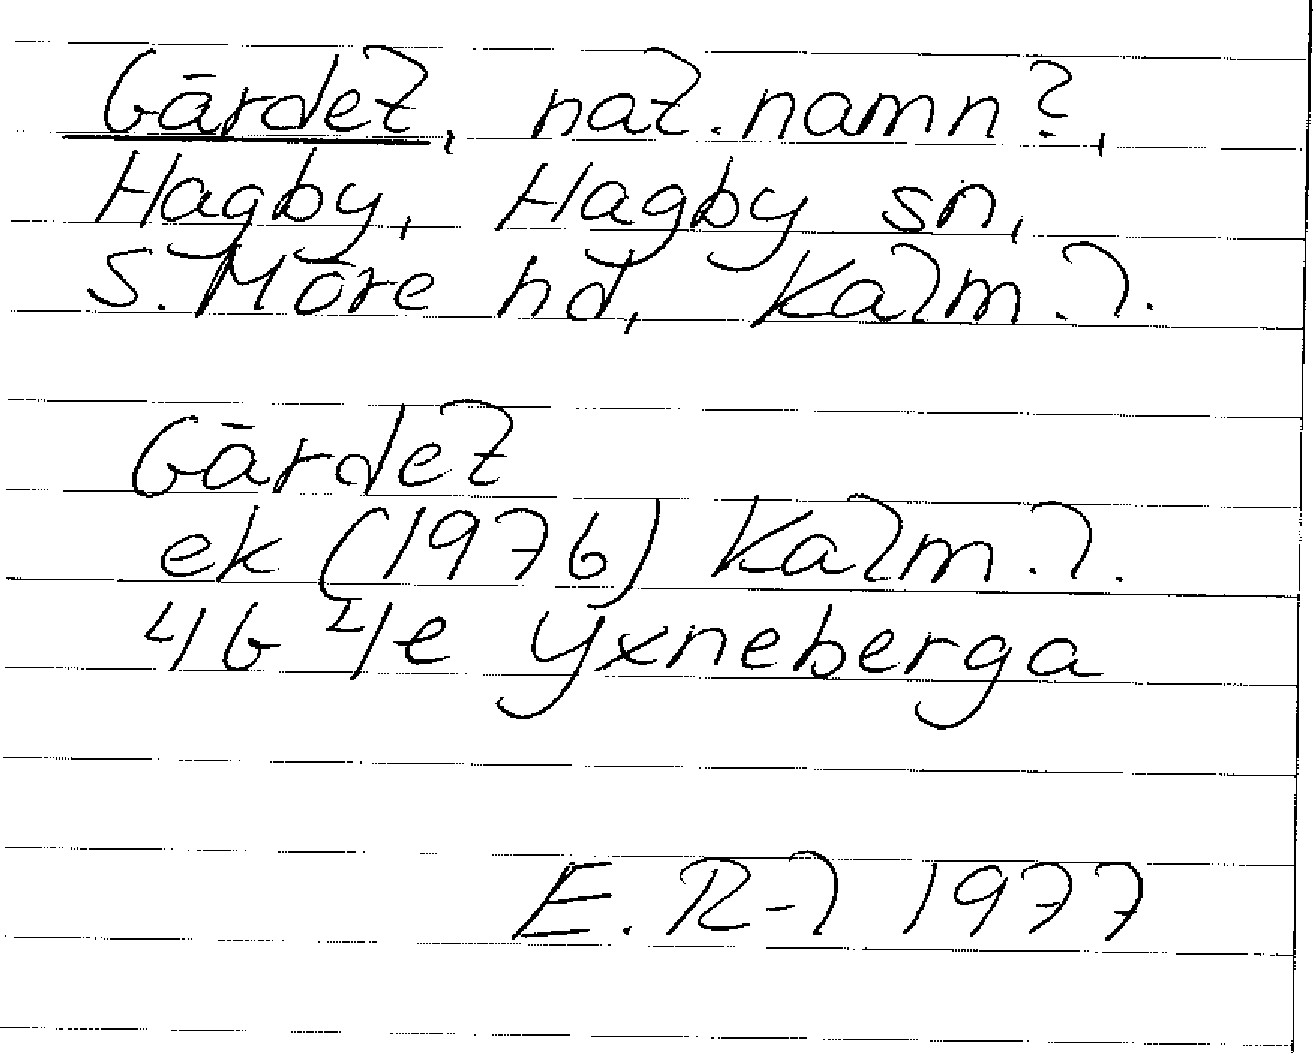 Gärdet, nat. namn?,
Hagby, Hagby sn,
S. Möre hd, Kalm. l.
Gärdet
ek (1976) Kalm. l.
4G 4e Yxneberga
E. R-l 1977